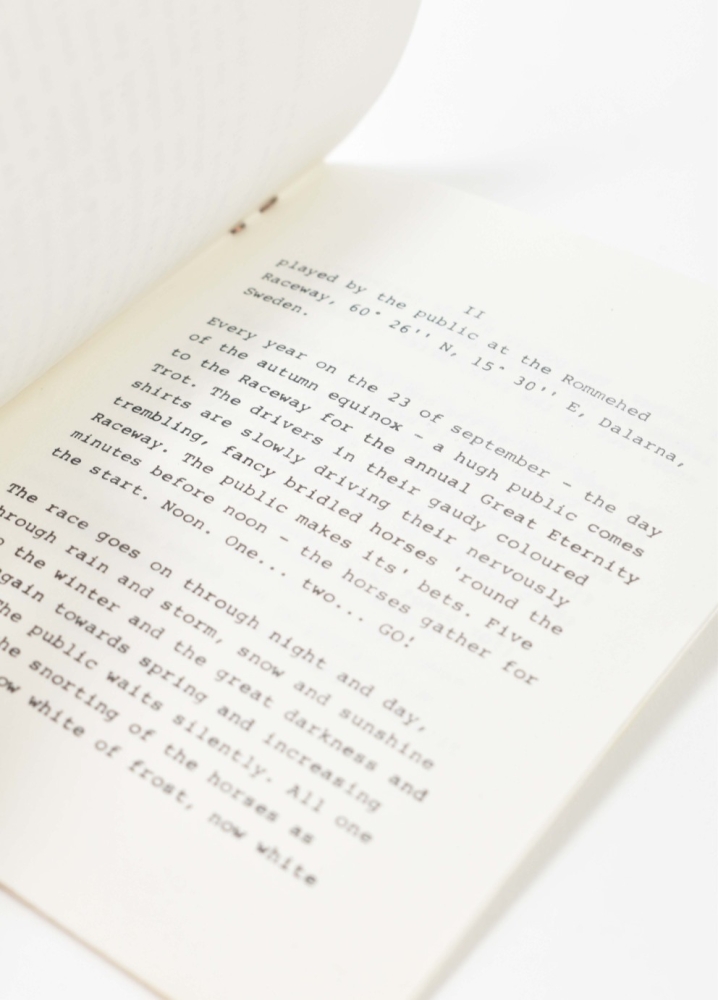 II
played by the public at the Rommehed
Raceway, 60° 26'' N, 15° 30'' E, Dalarna,
Sweden.
Every year on the 23 of september - the day
of the autumn equinox - a hugh public comes
to the Raceway for the annual Great Eternity
Trot. The drivers in their gaudy coloured
shirts are slowly driving their nervously
trembling, fancy bridled horses 'round the
Raceway. The public makes its' bets. Five
minutes before noon - the horses gather for
the start. Noon. One... two... GO!
The race goes on through night and day,
through rain and storm, snow and sunshine
the winter and the great darkness and
again towards spring and increasing
The public waits silently. All one
the snorting of the horses as
now white of frost, now white